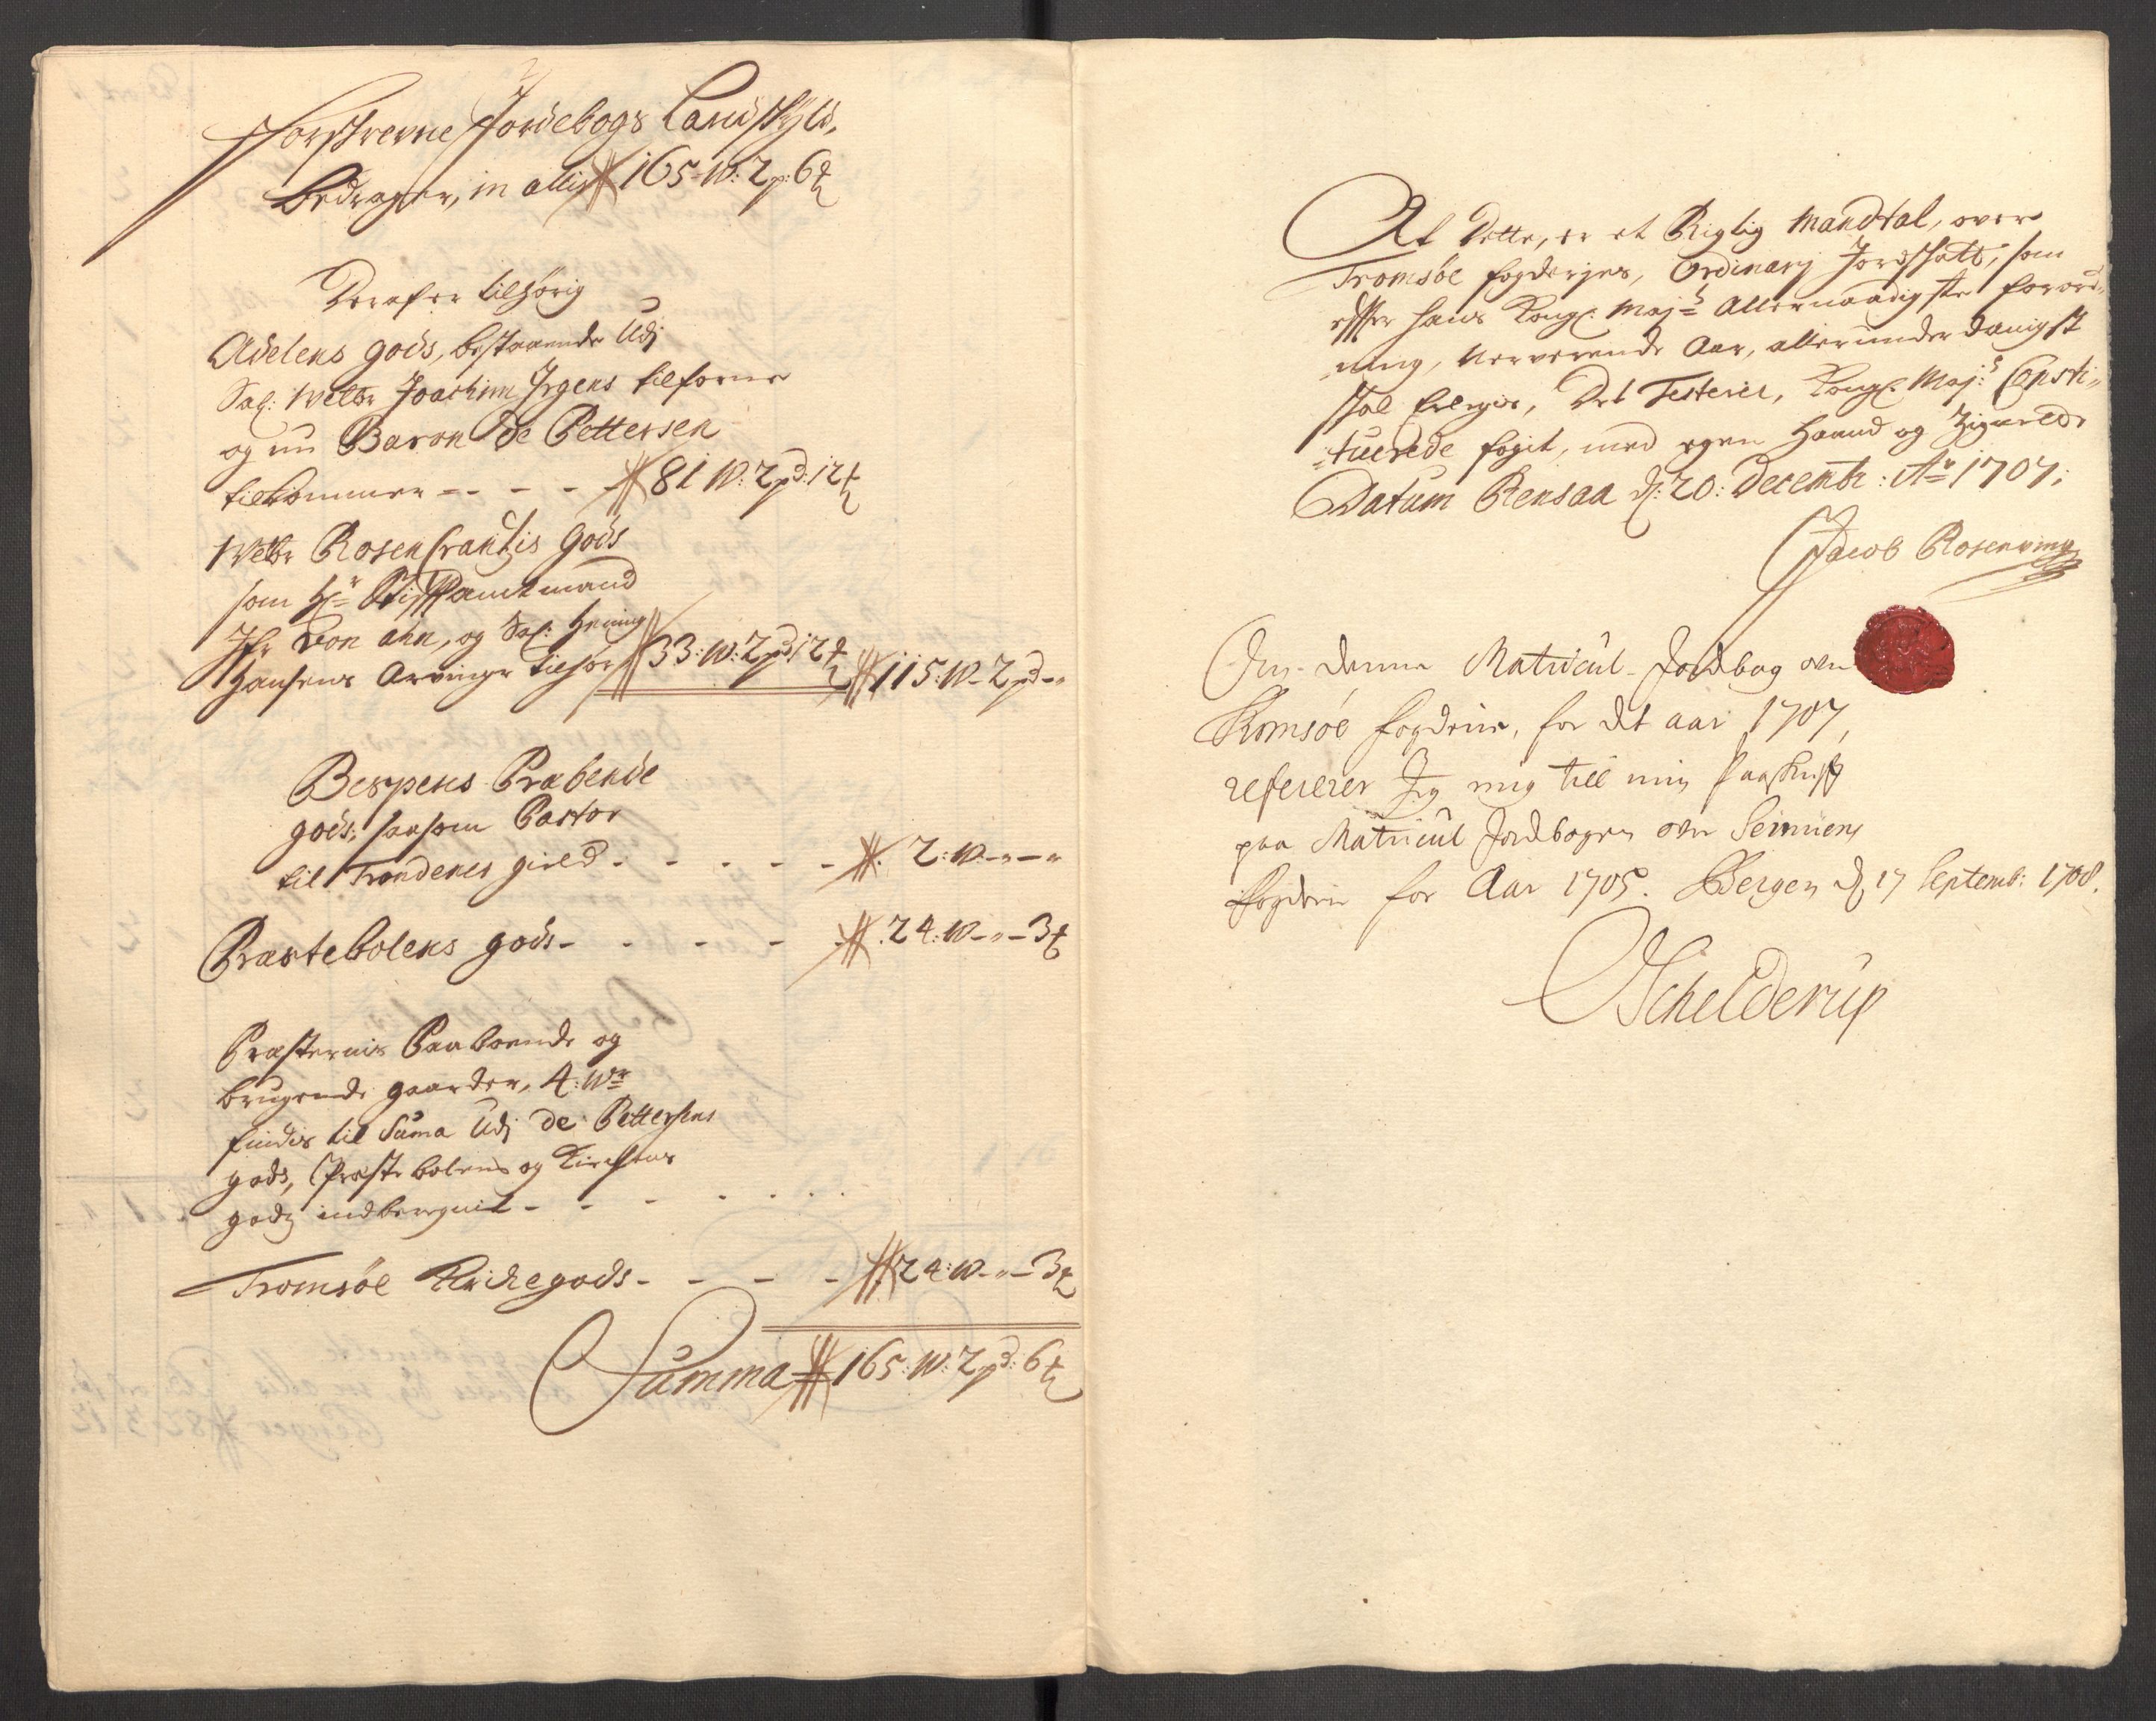 Forschrevne Jordebogs Landskyld,
Bedrager, in allis 165 W: 2 p: 6 ℔
Deraf er tilhørig
Adelens gods, bestaaende Udj
Sal: Welbr Joachim Jrgens tilforne
og nu Baron de Pettersen
tilkommer - - - - 81 W: 2 pd: 12 ℔
Welbr RosenCrantzis Gods
som Hr Stifftamtmand
Jfr Von ahn, og Sal: Hening
Hansens Arvinger tilhør 33: W: 2 pd 12 ℔ 115: W - 2 pd - "
Bespens Præbende
gods: saasom Pastor
til Trondenes gield - - - - - 2: W - " - "
Præstebolens gods - - - - - 24: W - " - 3 ℔
Præsternis Paaboende og
brugende gaarder, 4: Wr
findis til Suma Udj de Pettersens
gods, Præstebolens og Kirchens
godz indberegnit - - - - - -
Tromsöe Kirchegods - - - - 24: W - " - 3 ℔
Summa 165: W: 2 pd: 6 ℔
At dette, er et Rigtig Mandtal, over
Tromsöe fogderjes, Ordinarj Jordskatt, som
effter Hans Kongl: Maj:s Allernaadigste forord-
ning, nerverende Aar, allerunderdanigst
skal Erlegis, Det Testerer, Kongl: Maj:s Consti-
tuerede fogit, med egen Haand og Zignete
Datum Rensaa d: 20: Decembr: Ao 1707:
Jacob Rosenving
Om denne Matricul Jordbog over
Tromsöe fogderie, for det aar 1707,
refererer Jeg mig till min Paaskrifft
paa Matricul Jordbogen over Senniens
fogderie for Aar 1705. Bergen d 17 Septemb: 1708.
Schelderup